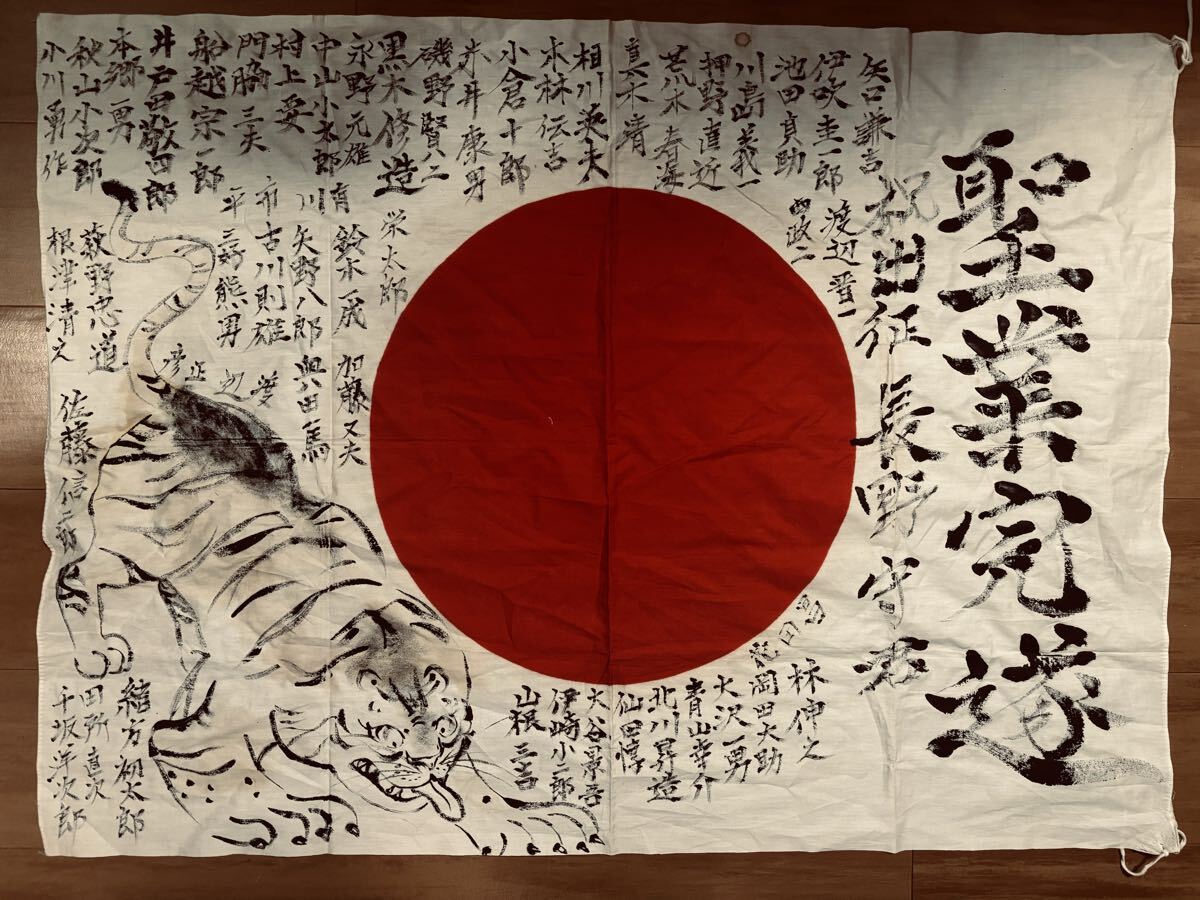 聖業完遂
祝出征 長野守君
矢口謙吉
伊吹圭一郎
渡辺晋一
池田貞助
政二
川島義一
押野直近
荒木春海
真木清
相川英夫
水林伝吉
小倉十郎
米井康男
磯野賢八
黒木修造
栄太郎
永野元雄
鈴木一成
加藤又夫
中山小太郎
矢野八郎
奥田一馬
村上受
古川則雄
門脇三夫
三好熊男
船越宗一郎
井戸田敬四郎
本郷勇
秋山小次郎
小川勇作
荻野忠道
根津清之
佐藤信二郎
林伸之
岡田大助
大沢一男
青山幸介
北川昇造
仙田惇
大谷昇吾
伊崎小二郎
山根三吉
緒方初太郎
田所直次
千坂洋次郎